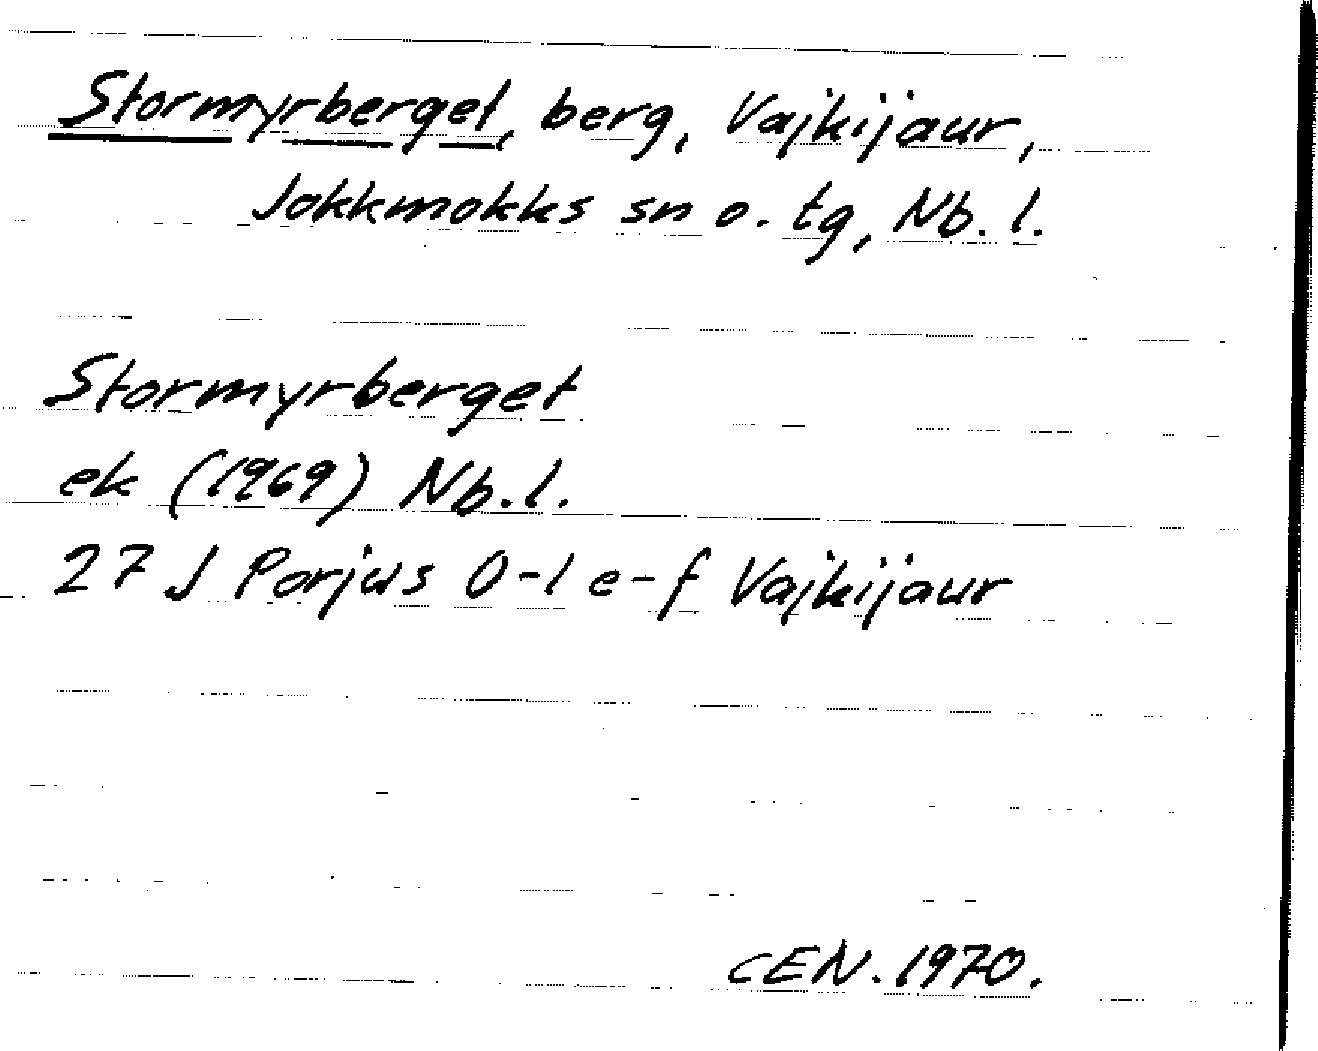 Stormyrberget, berg, Vajkijaur,
Jokkmokks sn o. tg, Nb. l.
Stormyrberget
ek (1969) Nb.l.
27 J Porjus 0-1 e-f Vajkijaur
CEN. 1970.